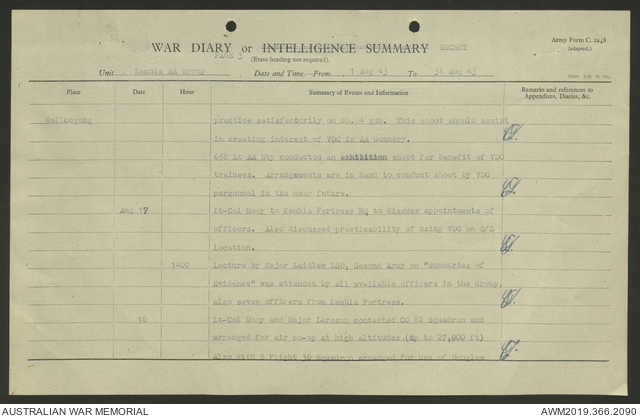 Army Form C. 2118
(adapted.)
WAR DIARY or INTELLIGENCE SUMMARY SECRET
PAGE 3
(Erase heading not required).
Unit Kembla AA Group Date and Time.—From 1 Aug 43 To 31 Aug 43
Place Date Hour Summary of Events and Information Remarks and references to Appendices, Diaries, &c.
Wollongong practice satisfactorily on No. 4 gun. This shoot should assist
in creating interest of VDC in AA Gunnery.
658 Lt AA Bty conducted an exhibition shoot for benefit of VDC
trainees. Arrangements are in hand to conduct shoot by VDC
personnel in the near future.
Aug 17 Lt-Col Macy to Kembla Fortress HQ to discuss appointments of
officers. Also discussed practicability of using VDC on S/L
location.
1400 Lecture by Major Laidlaw LSO, Second Army on "Summaries of
Evidence" was attended by all available officers in the Group,
also seven officers from Kembla Fortress.
18 Lt-Col Macy and Major Larsson contacted CO 82 Squadron and
arranged for air co-op at high altitudes (up to 27,000 ft)
Also with B Flight 36 Squadron arranged for use of Douglas
AUSTRALIAN WAR MEMORIAL
AWM2019.366.2090